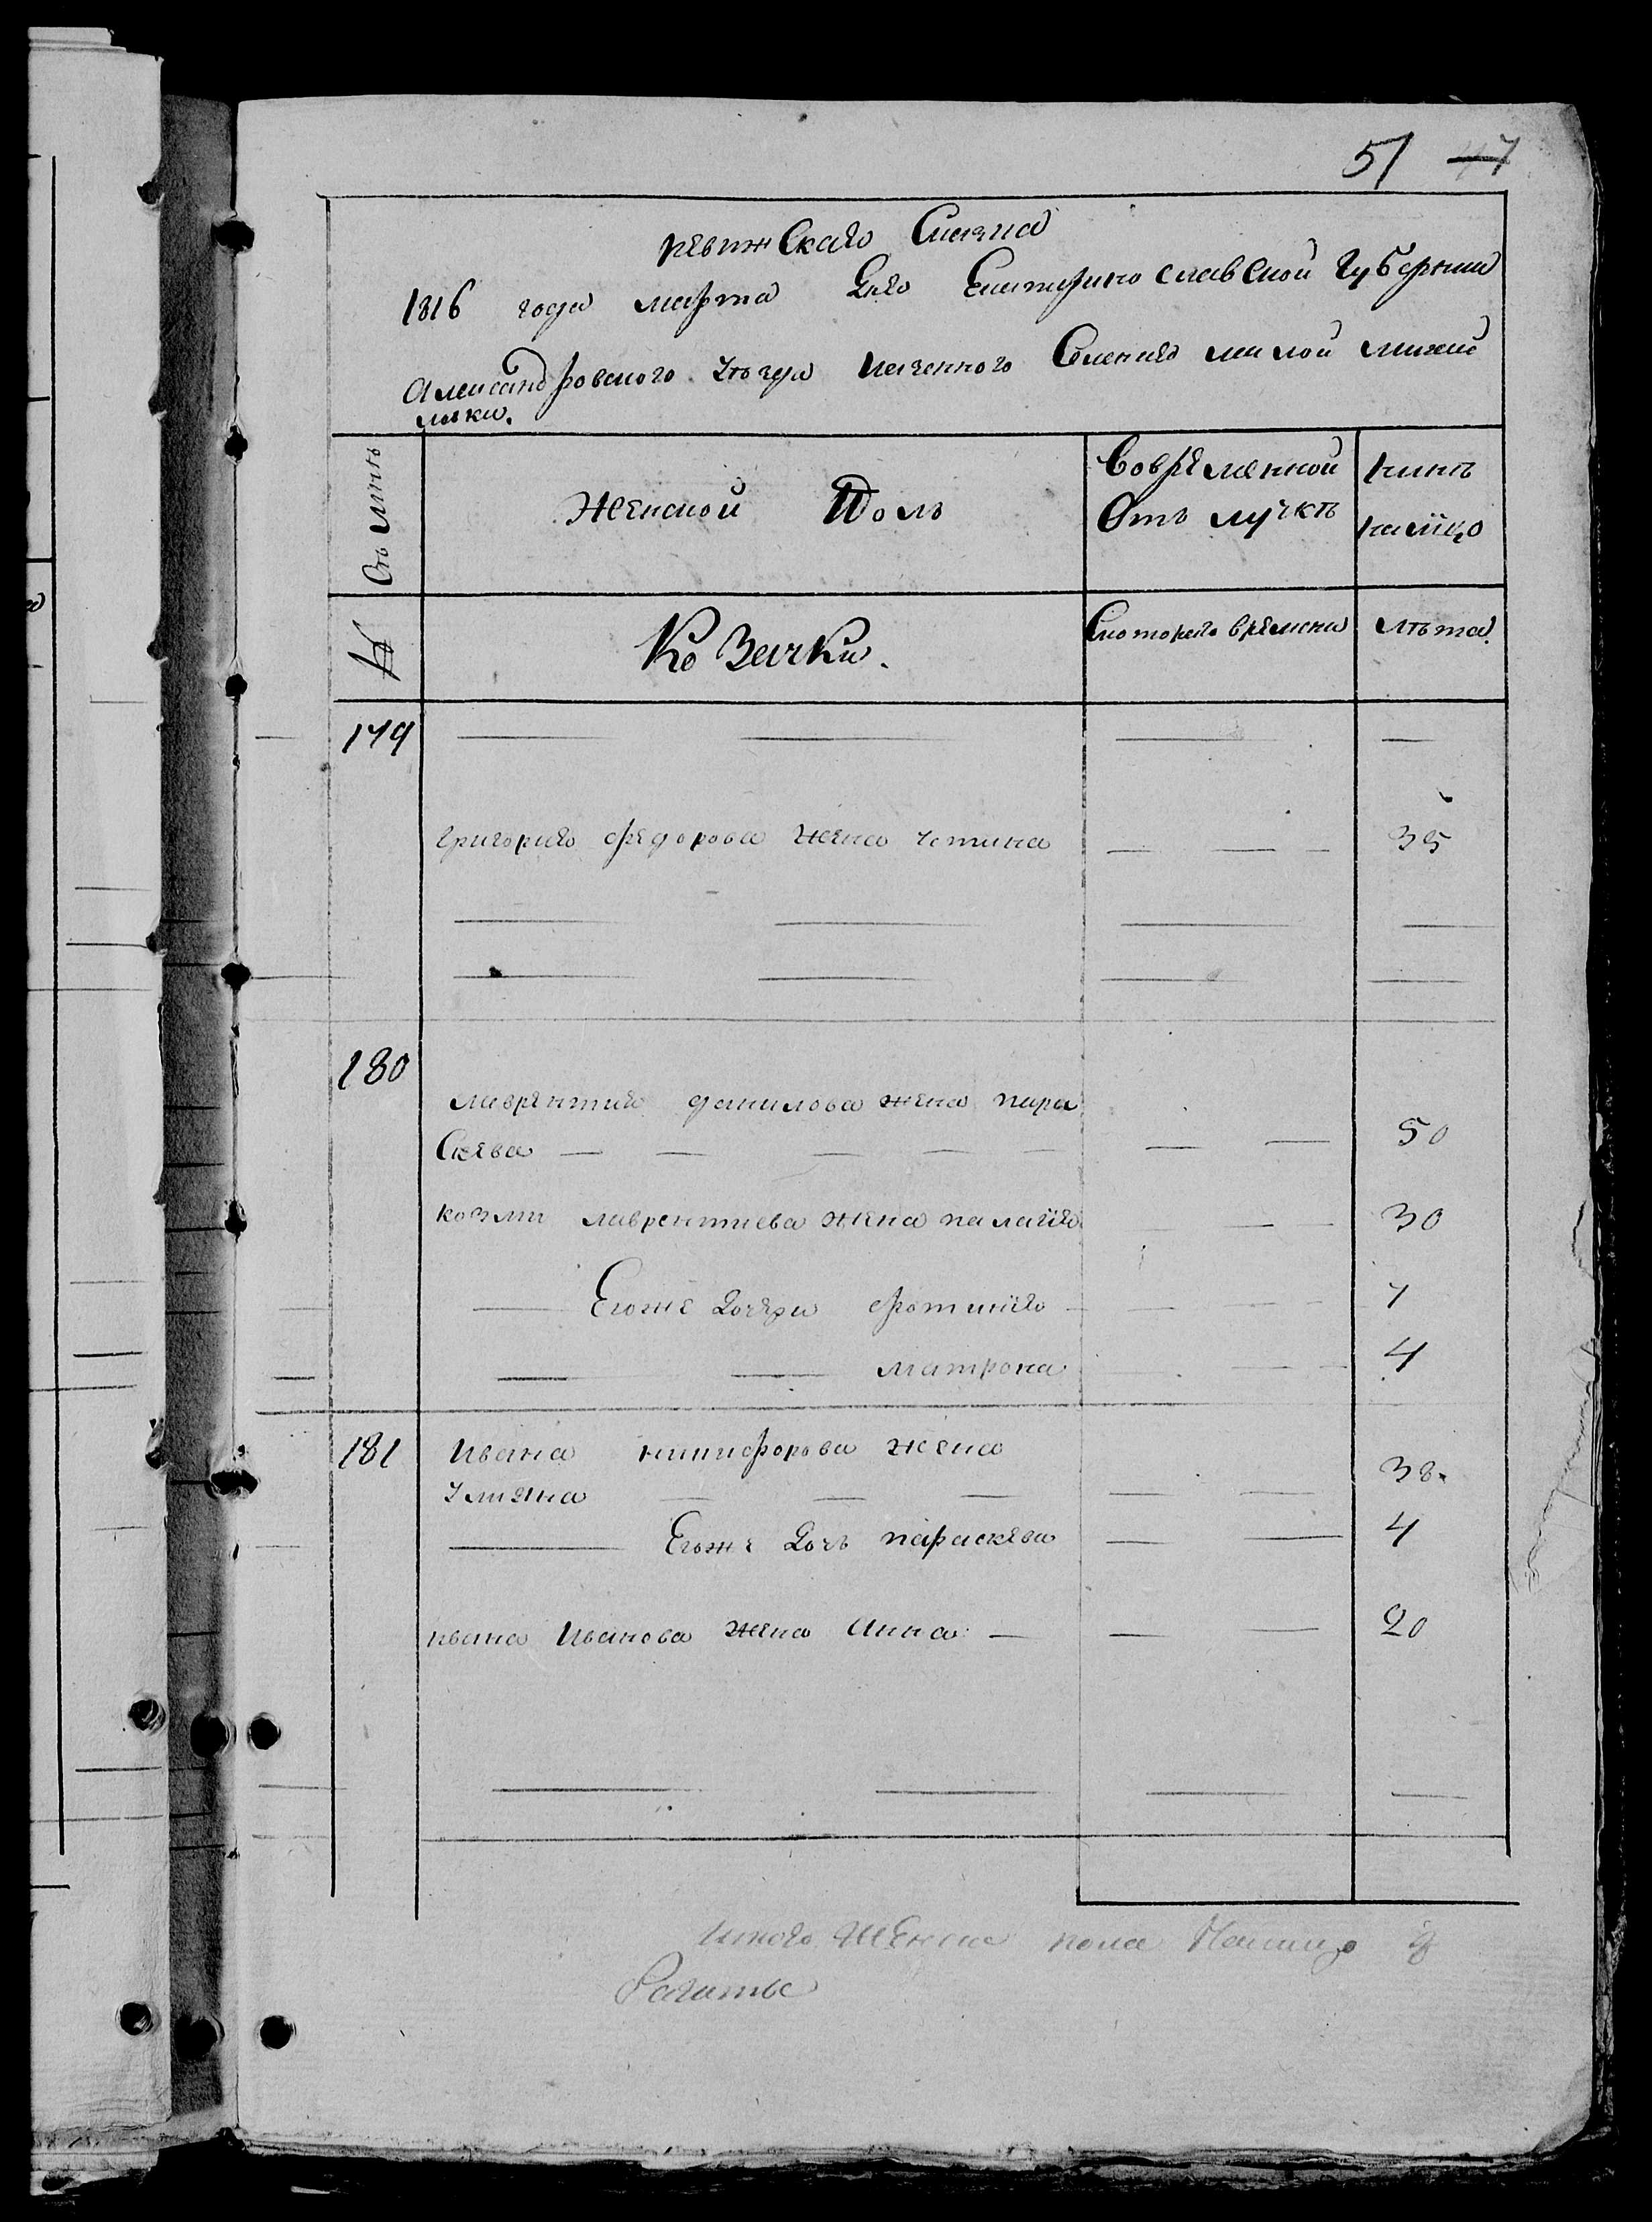 51 47
ревижскаго Списка
1816 года марта дня Екатеринославской губернии
Александровского уезда казенного Селения малой михай
ловки.
Семьи
Женской Полъ
Вовременной
Отъ лучкѣ
нынѣ
налицо
№
Козачки.
Скоторого времени
лѣта.
179
григория федорова жена устина 35
180
лаврентия данилова жена пара
скева 50
козми лаврентиева жена палагия 30
Егоже дочери фотиния 7
матрона 4
181 Ивана никифорова жена
улияна 38
Егоже дочь параскева 4
ивана Иванова жена Анна 20
Итого женска пола налицо